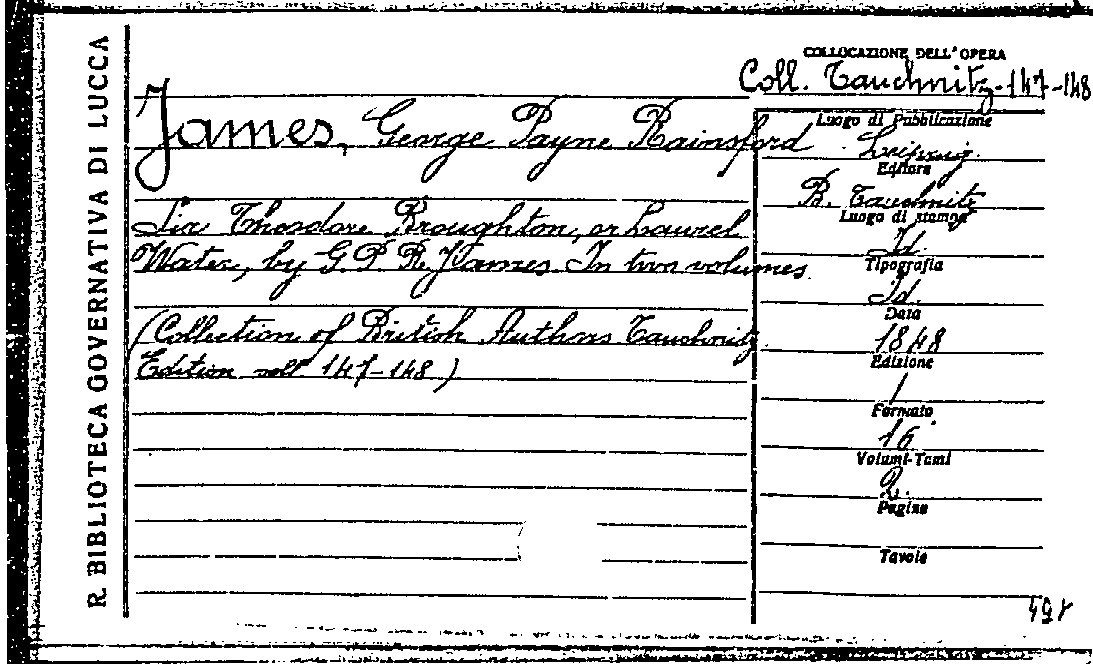 R. BIBLIOTECA GOVERNATIVA DI LUCCA
COLLOCAZIONE DELL'OPERA
Coll. Tauchnitz-147-148
James, George Payne Rainsford
Sir Theodore Broughton, or Laurel
Water, by G. P. R. James. In two volumes.
(Collection of British Authors Tauchnitz
Edition voll 147-148)
Luogo di Pubblicazione
Leipzig.
Editore
B. Tauchnitz
Luogo di stampa
Id.
Tipografia
Id.
Data
1848
Edizione
/
Formato
16°
Volumi-Tomi
2.
Pagine
Tavole